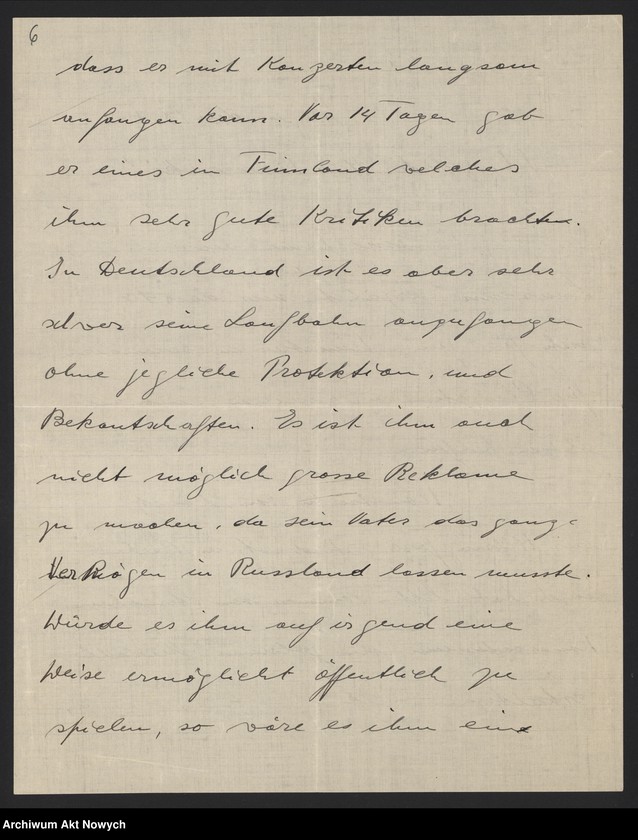 6
dass er mit Konzerten langsam
anfangen kann. Vor 14 Tagen gab
er eines in Finnland welches
ihm sehr gute Kritiken brachte.
In Deutschland ist es aber sehr
schwer seine Laufbahn anzufangen
ohne jegliche Protektion, und
Bekantschaften. Es ist ihm auch
nicht möglich grosse Reklame
zu machen, da sein Vater das ganze
Vermögen in Russland lassen musste.
Würde es ihm auf irgend eine
Weise ermöglicht öffentlich zu
spielen, so wäre es ihm eine
Archiwum Akt Nowych